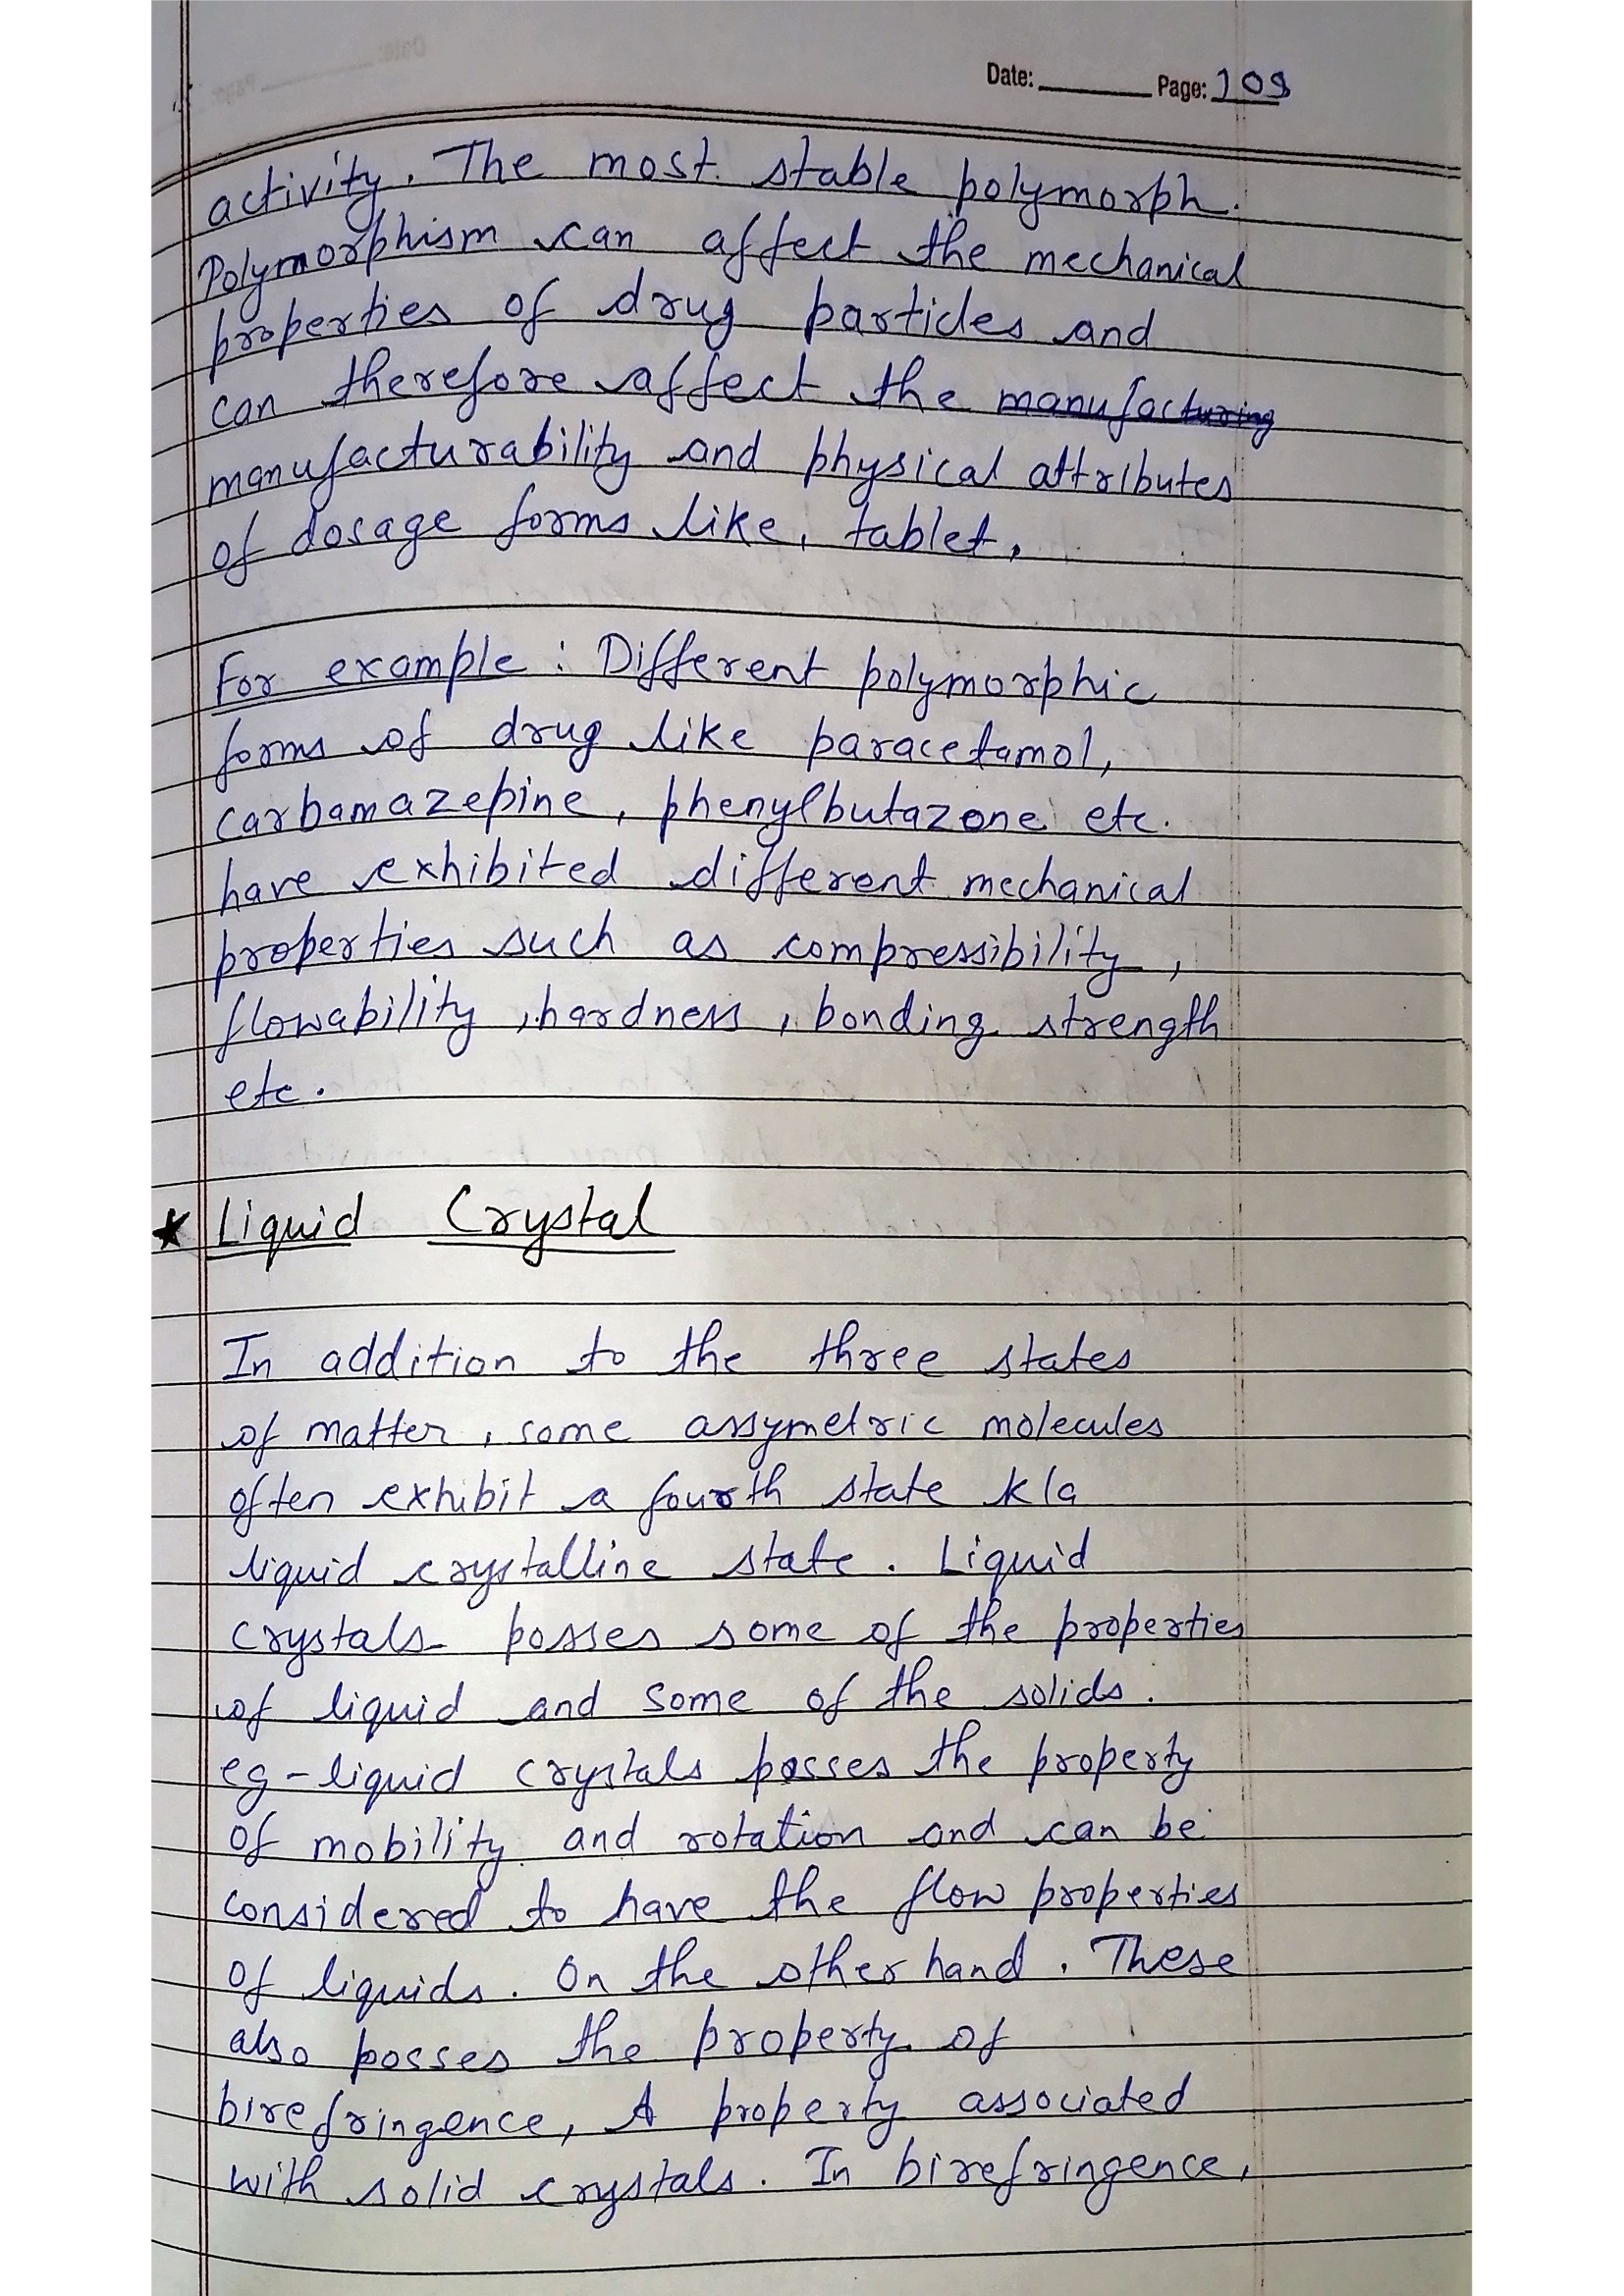 Date: Page: 109
activity. The most stable polymorph.
Polymorphism can affect the mechanical
properties of drug particles and
can therefore affect the manufacturing
manufacturability and physical attributes
of dosage forms like, tablet.
For example : Different polymorphic
forms of drug like paracetamol,
carbamazepine, phenylbutazone etc.
have exhibited different mechanical
properties such as compressibility,
flowability, hardness, bonding strength
etc.
* Liquid Crystal
In addition to the three states
of matter, some assymetric molecules
often exhibit a fourth state k/a
liquid crystalline state. Liquid
crystals posses some of the properties
of liquid and some of the solids.
eg - liquid crystals posses the property
of mobility and rotation and can be
considered to have the flow properties
of liquids. On the other hand. These
also posses the property of
birefringence, A property associated
with solid crystals. In birefringence,